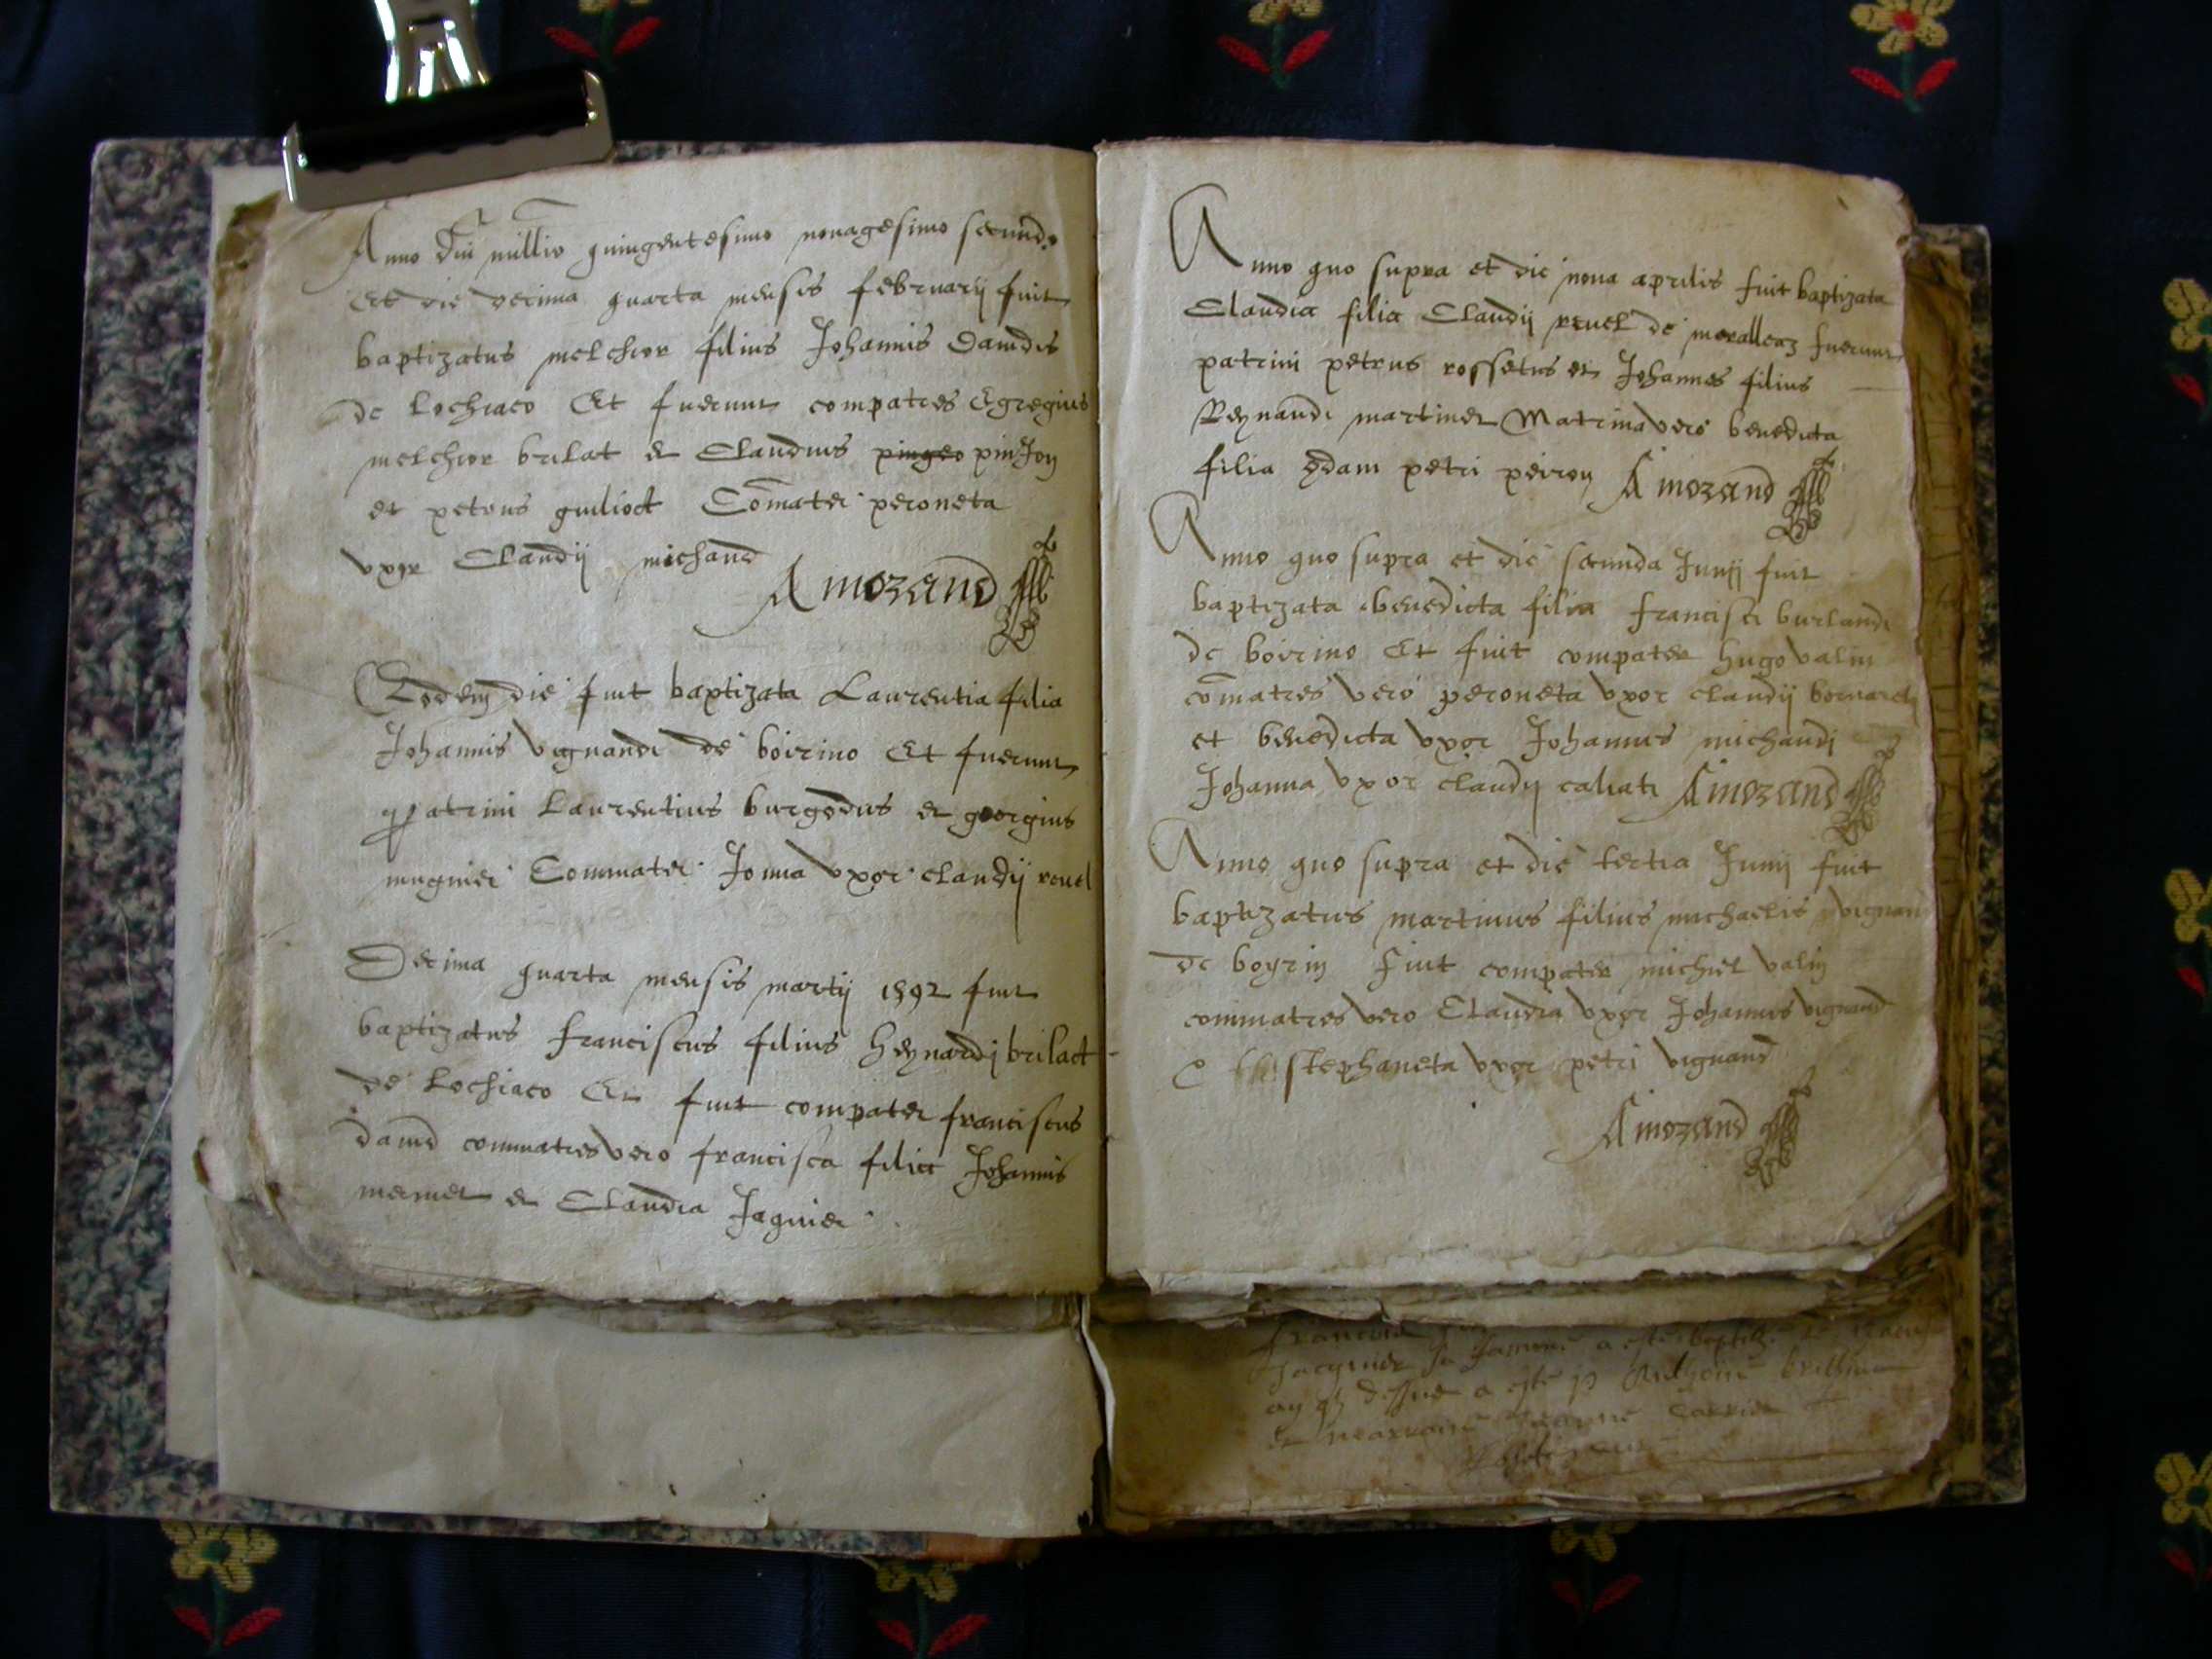 Anno dni millio quingentesimo nonagesimo secundo
Et die decima quarta mensis februarij fuit
baptizatus melchior filius Johannis Dauidis
de lochiaco Et fuerunt compatres Egregius
melchior brilat et Claudius pingeo pinjon
et petrus guiliod Comater peroneta
vxor Claudij michaud
Amozand
Eodem die fuit baptizata Laurentia filia
Johannis vignandi de boirino Et fuerunt
patrini Laurentius burgodus et georgius
mugnier Commater Joma vxor claudij reuel
Decima quarta mensis martij 1592 fuit
baptizatus franciscus filius heynardj brilact
de lochiaco Et fuit compater franciscus
dauid commatres vero francisca filia Johannis
mermet et Claudia Jaquier
Anno quo supra et die nona aprilis fuit baptizata
Claudia filia Claudij reuel de moralleaz fuerunt
patrini petrus rossetus et Johannes filius
Reynandi martinet Matrina vero benedicta
filia qdam petri peiron Amozand
Anno quo supra et die secunda Junij fuit
baptizata benedicta filia francisci burlandi
de boirino Et fuit compater hugo valin
comatres vero peroneta vxor claudij
et benedicta vxor Johannis michaudj
Johanna vxor claudij caliati Amozand
Anno quo supra et die tertia Junij fuit
baptizatus martinus filius michaelis vignan
de boyrin fuit compater michiet valin
commatres vero Claudia vxor Johannis vignand
stephaneta vxor petri vignand
Amozand
a este
dessus a este
et marraine